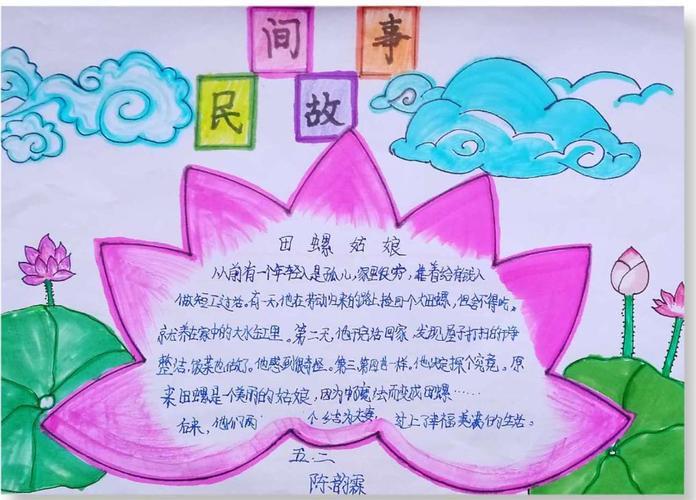 民间故事
田螺姑娘
从前有一个年轻人是孤儿,家里很穷,靠着给有钱人
做短工过活。有一天,他在劳动归来的路上捡回个大田螺,但舍不得吃,
就养在家中的大水缸里。第二天,他干完活回家,发现屋子打扫的干净
整洁,饭菜也做了。他感到很奇怪。第三、第四天也一样。他决定探个究竟。原
来田螺是一个美丽的姑娘,因为中魔法而变成田螺……
后来,他们两个结为夫妻 过上了幸福美满的生活。
五.二
陈韵霖